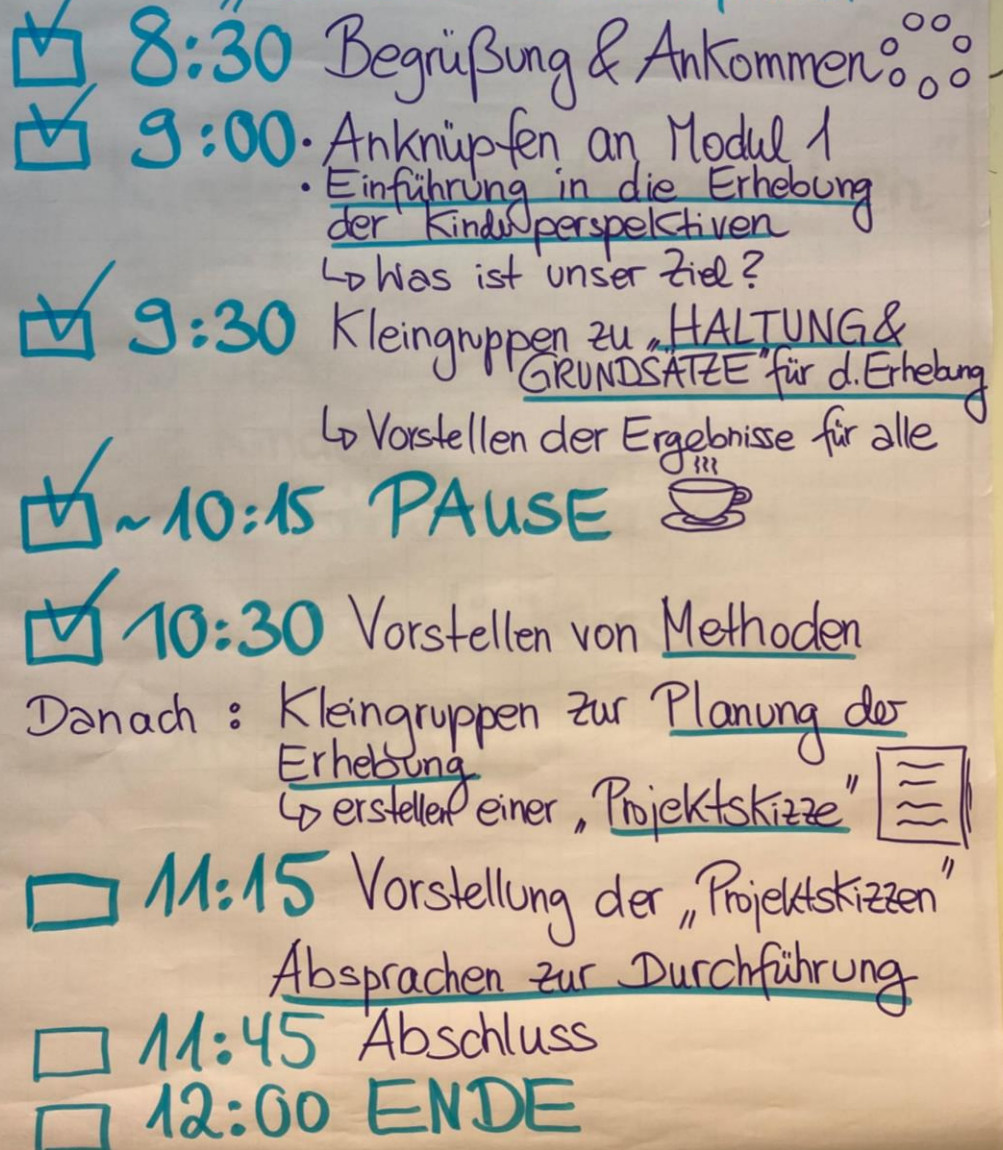 8:30 Begrüßung & Ankommen
9:00 • Anknüpfen an Modul 1
• Einführung in die Erhebung
der Kinderperspektiven
↳ Was ist unser Ziel?
9:30 Kleingruppen zu „HALTUNG &
GRUNDSÄTZE" für d. Erhebung
↳ Vorstellen der Ergebnisse für alle
~10:15 PAUSE
10:30 Vorstellen von Methoden
Danach: Kleingruppen zur Planung der
Erhebung
↳ erstellen einer „Projektskizze"
11:15 Vorstellung der „Projektskizzen"
Absprachen zur Durchführung
11:45 Abschluss
12:00 ENDE